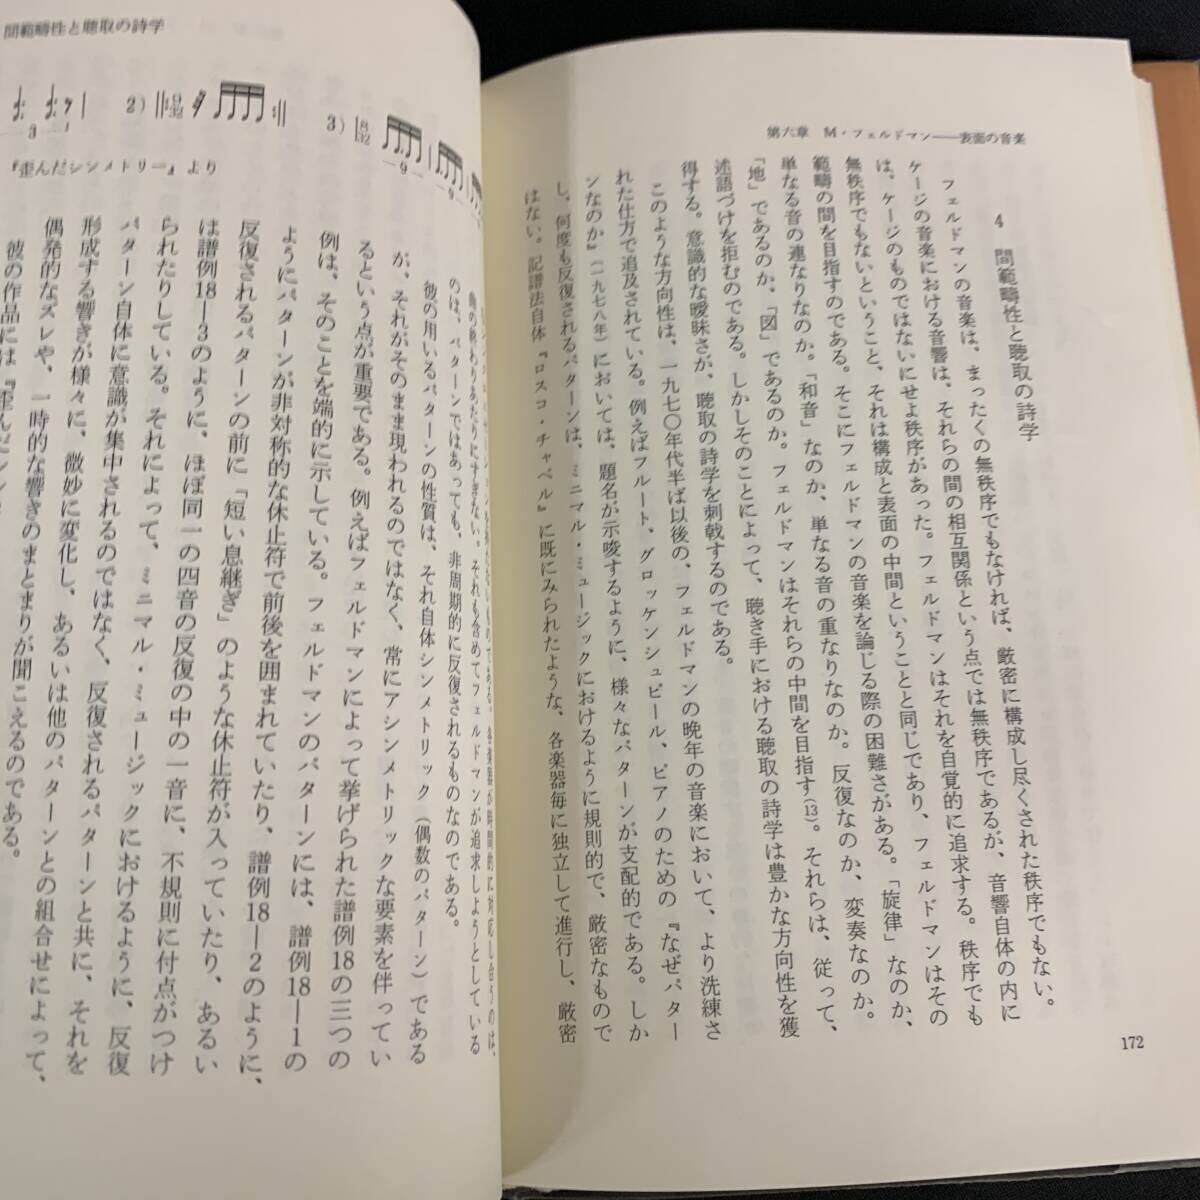 第六章　M・フェルドマン――表面の音楽
4　間範疇性と聴取の詩学
フェルドマンの音楽は、まったくの無秩序でもなければ、厳密に構成し尽くされた秩序でもない。
ケージの音楽における音響は、それらの間の相互関係という点では無秩序であるが、音響自体の内に
は、ケージのものではないにせよ秩序があった。フェルドマンはそれを自覚的に追求する。秩序でも
無秩序でもないということ、それは構成と表面の中間ということと同じであり、フェルドマンはその
範疇の間を目指すのである。そこにフェルドマンの音楽を論じる際の困難さがある。「旋律」なのか、
単なる音の連なりなのか。「和音」なのか、単なる音の重なりなのか。反復なのか、変奏なのか。
「地」であるのか、「図」であるのか。フェルドマンはそれらの中間を目指す(13)。それらは、従って、
述語づけを拒むのである。しかしそのことによって、聴き手における聴取の詩学は豊かな方向性を獲
得する。意識的な曖昧さが、聴取の詩学を刺戟するのである。
このような方向性は、一九七〇年代半ば以後の、フェルドマンの晩年の音楽において、より洗練さ
れた仕方で追及されている。例えばフルート、グロッケンシュピール、ピアノのための『なぜパター
ンなのか』(一九七八年)においては、題名が示唆するように、様々なパターンが支配的である。しか
し、何度も反復されるパターンは、ミニマル・ミュージックにおけるように規則的で、厳密なもので
はない。記譜法自体『ロスコ・チャペル』に既にみられたような、各楽器毎に独立して進行し、厳密
172
間範疇性と聴取の詩学
2)
3)
『歪んだシンメトリー』より
曲の終わりあたりにすぎない。それも含めてフェルドマンが追求しようとしている
のは、パターンではあっても、非周期的に反復されるものなのである。
彼の用いるパターンの性質は、それ自体シンメトリック(偶数のパターン)である
が、それがそのまま現われるのではなく、常にアシンメトリックな要素を伴ってい
るという点が重要である。例えばフェルドマンによって挙げられた譜例18の三つの
例は、そのことを端的に示している。フェルドマンのパターンには、譜例18―1の
ようにパターンが非対称的な休止符で前後を囲まれていたり、譜例18―2のように、
反復されるパターンの前に「短い息継ぎ」のような休止符が入っていたり、あるい
は譜例18―3のように、ほぼ同一の四音の反復の中の一音に、不規則に付点がつけ
られたりしている。それによって、ミニマル・ミュージックにおけるように、反復
パターン自体に意識が集中されるのではなく、反復されるパターンと共に、それを
形成する響きが様々に、微妙に変化し、あるいは他のパターンとの組合せによって、
偶発的なズレや、一時的な響きのまとまりが聞こえるのである。
彼の作品には『歪んだシン